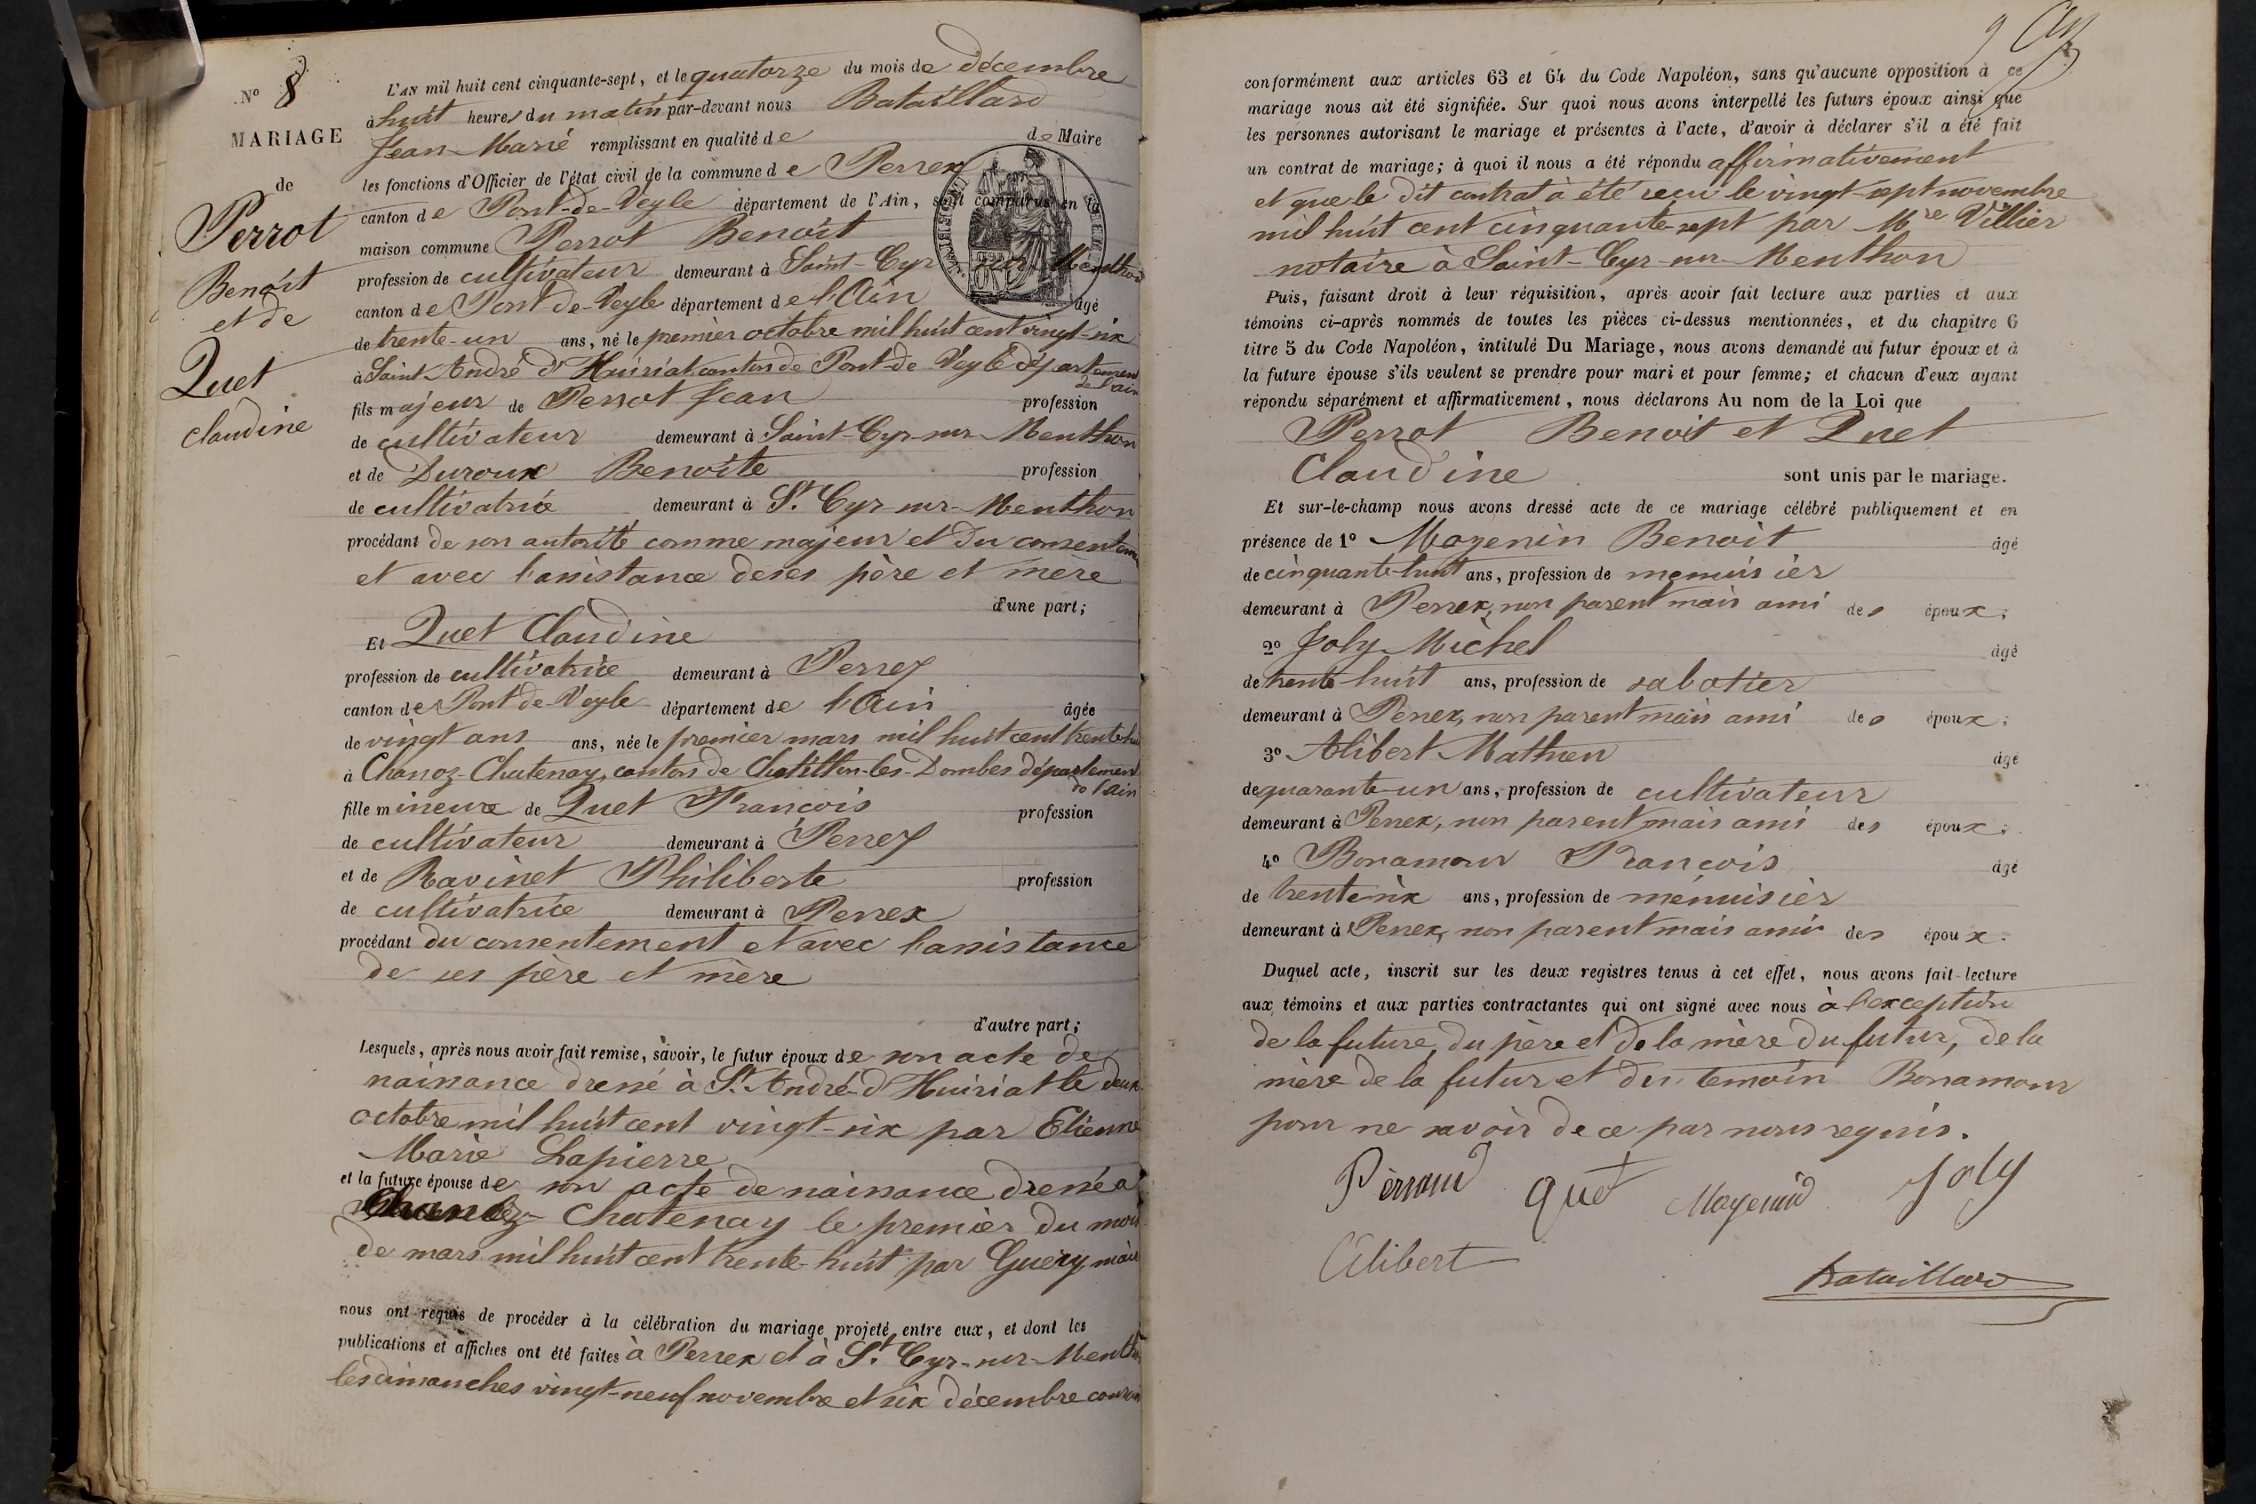 N° 8
MARIAGE
de
Perrot
Benoît
et de
Quet
Claudine
L'AN mil huit cent cinquante-sept, et le quatorze du mois de décembre
à huit heures du matin par-devant nous Bataillard
Jean-Marie remplissant en qualité de de Maire
les fonctions d'Officier de l'état civil de la commune de Perrex
canton de Pont-de-Veyle département de l'Ain, sont comparus en la
maison commune Perrot Benoît
profession de cultivateur demeurant à Saint-Cyr-sur-Menthon
canton de Pont-de-Veyle département de l'Ain âgé
de trente-un ans, né le premier octobre mil huit cent vingt-six
à Saint-André d'Huiriat canton de Pont-de-Veyle département
de l'ain
fils majeur de Perrot Jean profession
de cultivateur demeurant à Saint-Cyr-sur-Menthon
et de Duroux Benoîte profession
de cultivatrice demeurant à St. Cyr-sur-Menthon
procédant de son autorité comme majeur et du consentem
et avec l'assistance de ses père et mère
d'une part;
Et Quet Claudine
profession de cultivatrice demeurant à Perrex
canton de Pont-de-Veyle département de l'Ain âgée
de vingt ans ans, née le premier mars mil huit cent trente-hui
à Chanoz-Chatenay, canton de Chatillon-les-Dombes département
de l'ain
fille mineure de Quet François profession
de cultivateur demeurant à Perrex
et de Ravinet Philiberte profession
de cultivatrice demeurant à Perrex
procédant du consentement et avec l'assistance
de ses père et mère
d'autre part;
Lesquels, après nous avoir fait remise, savoir, le futur époux de son acte de
naissance dressé à St. André-d'Huiriat le deux
octobre mil huit cent vingt-six par Etienne
Marie Lapierre
et la future épouse de son acte de naissance dressé à
Chanoz-Chatenay le premier du mois
de mars mil huit cent trente-huit par Guéry maire
nous ont requis de procéder à la célébration du mariage projeté entre eux, et dont les
publications et affiches ont été faites à Perrex et à St. Cyr-sur-Menth
les dimanches vingt-neuf novembre et six décembre couran
conformément aux articles 63 et 64 du Code Napoléon, sans qu'aucune opposition à ce
mariage nous ait été signifiée. Sur quoi nous avons interpellé les futurs époux ainsi que
les personnes autorisant le mariage et présentes à l'acte, d'avoir à déclarer s'il a été fait
un contrat de mariage; à quoi il nous a été répondu affirmativement
et que le dit contrat à été reçu le vingt-sept novembre
mil huit cent cinquante-sept par Mre Villier
notaire à Saint-Cyr-sur-Menthon
Puis, faisant droit à leur réquisition, après avoir fait lecture aux parties et aux
témoins ci-après nommés de toutes les pièces ci-dessus mentionnées, et du chapitre 6
titre 5 du Code Napoléon, intitulé Du Mariage, nous avons demandé au futur époux et à
la future épouse s'ils veulent se prendre pour mari et pour femme; et chacun d'eux ayant
répondu séparément et affirmativement, nous déclarons Au nom de la Loi que
Perrot Benoit et Quet
Claudine sont unis par le mariage.
Et sur-le-champ nous avons dressé acte de ce mariage célébré publiquement et en
présence de 1° Moyenin Benoit âgé
de cinquante-huit ans, profession de menuisier
demeurant à Perrex, non parent mais ami des époux;
2° Joly Michel âgé
de trente-huit ans, profession de sabotier
demeurant à Perrex, non parent mais ami des époux;
3° Alibert Mathieu âgé
de quarante-un ans, profession de cultivateur
demeurant à Perrex, non parent mais ami des époux;
4° Bonamour François âgé
de trente-six ans, profession de menuisier
demeurant à Perrex, non parent mais ami des époux.
Duquel acte, inscrit sur les deux registres tenus à cet effet, nous avons fait lecture
aux témoins et aux parties contractantes qui ont signé avec nous à l'exception
de la future, du père et de la mère du futur, de la
mère de la futur et du temoin Bonamour
pour ne savoir de ce par nous requis.
quet Moyenin Joly
Alibert
Bataillard